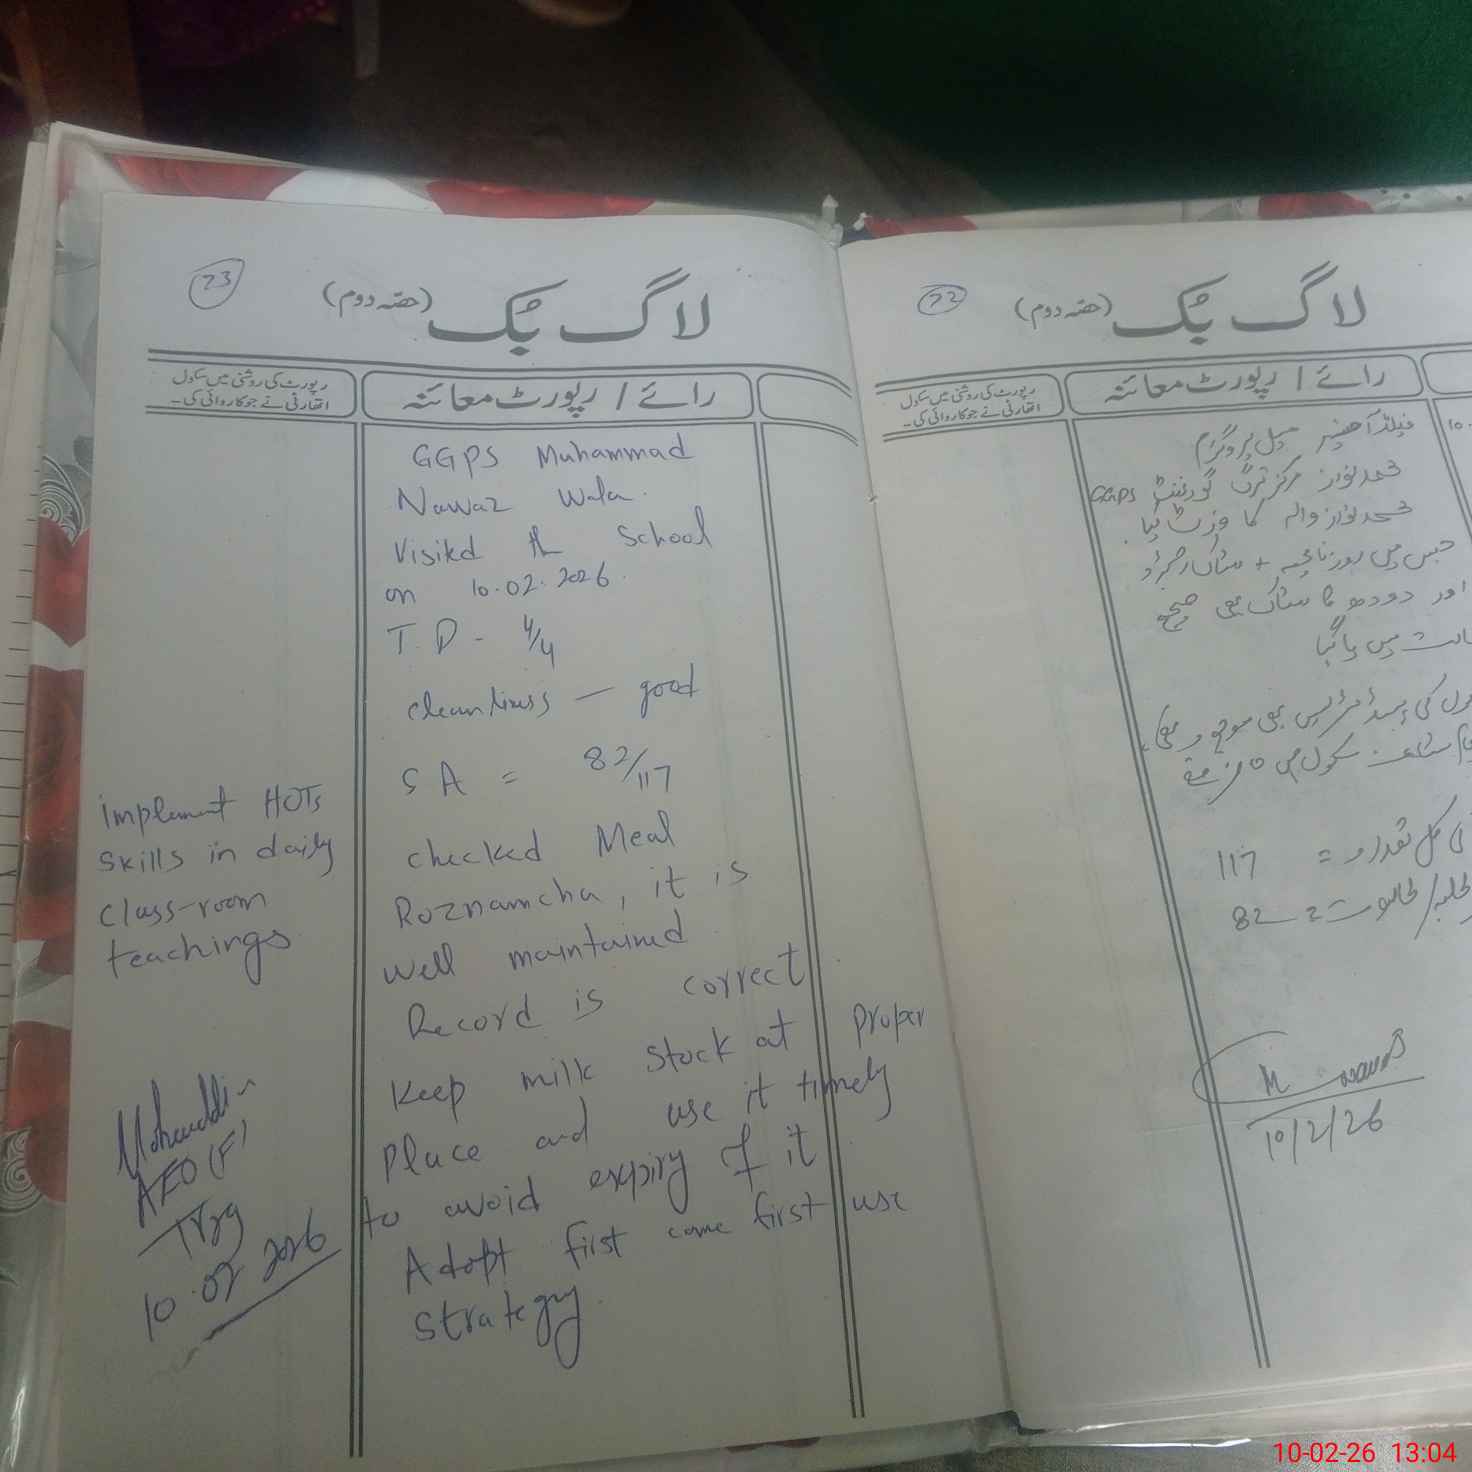 23
لاگ بُک (حصّہ دوم)
رپورٹ کی روشنی میں سکول
اتھارٹی نے جو کاروائی کی۔
رائے / رپورٹ معائنہ
GGPS Muhammad
Nawaz Wala.
Visited the School
on 10.02.2026.
T.D - 4/4
cleanliness — good
SA = 82/117
checked Meal
Roznamcha, it is
well maintained.
Record is correct.
Keep milk stock at proper
place and use it timely
to avoid expiry of it.
Adopt first come first use
strategy.
implement HOTs
skills in daily
class-room
teachings.
AEO (F)
Trgg
10.02.2026
72
لاگ بُک (حصّہ دوم)
رپورٹ کی روشنی میں سکول
اتھارٹی نے جو کاروائی کی۔
رائے / رپورٹ معائنہ
10.
فیلڈ آفیسر میل پروگرام
محمد نواز مرکز ترگ گورنمنٹ GGPS
محمد نواز والہ کا وزٹ کیا.
جس میں روزنامچہ + سٹاک رجسٹر
اور دودھ کا سٹاک بھی صحیح
میں پایا گیا
کی بھی موجود تھی
سکول میں
کل تعداد = 117
82
M Nawaz
10/2/26
10-02-26 13:04